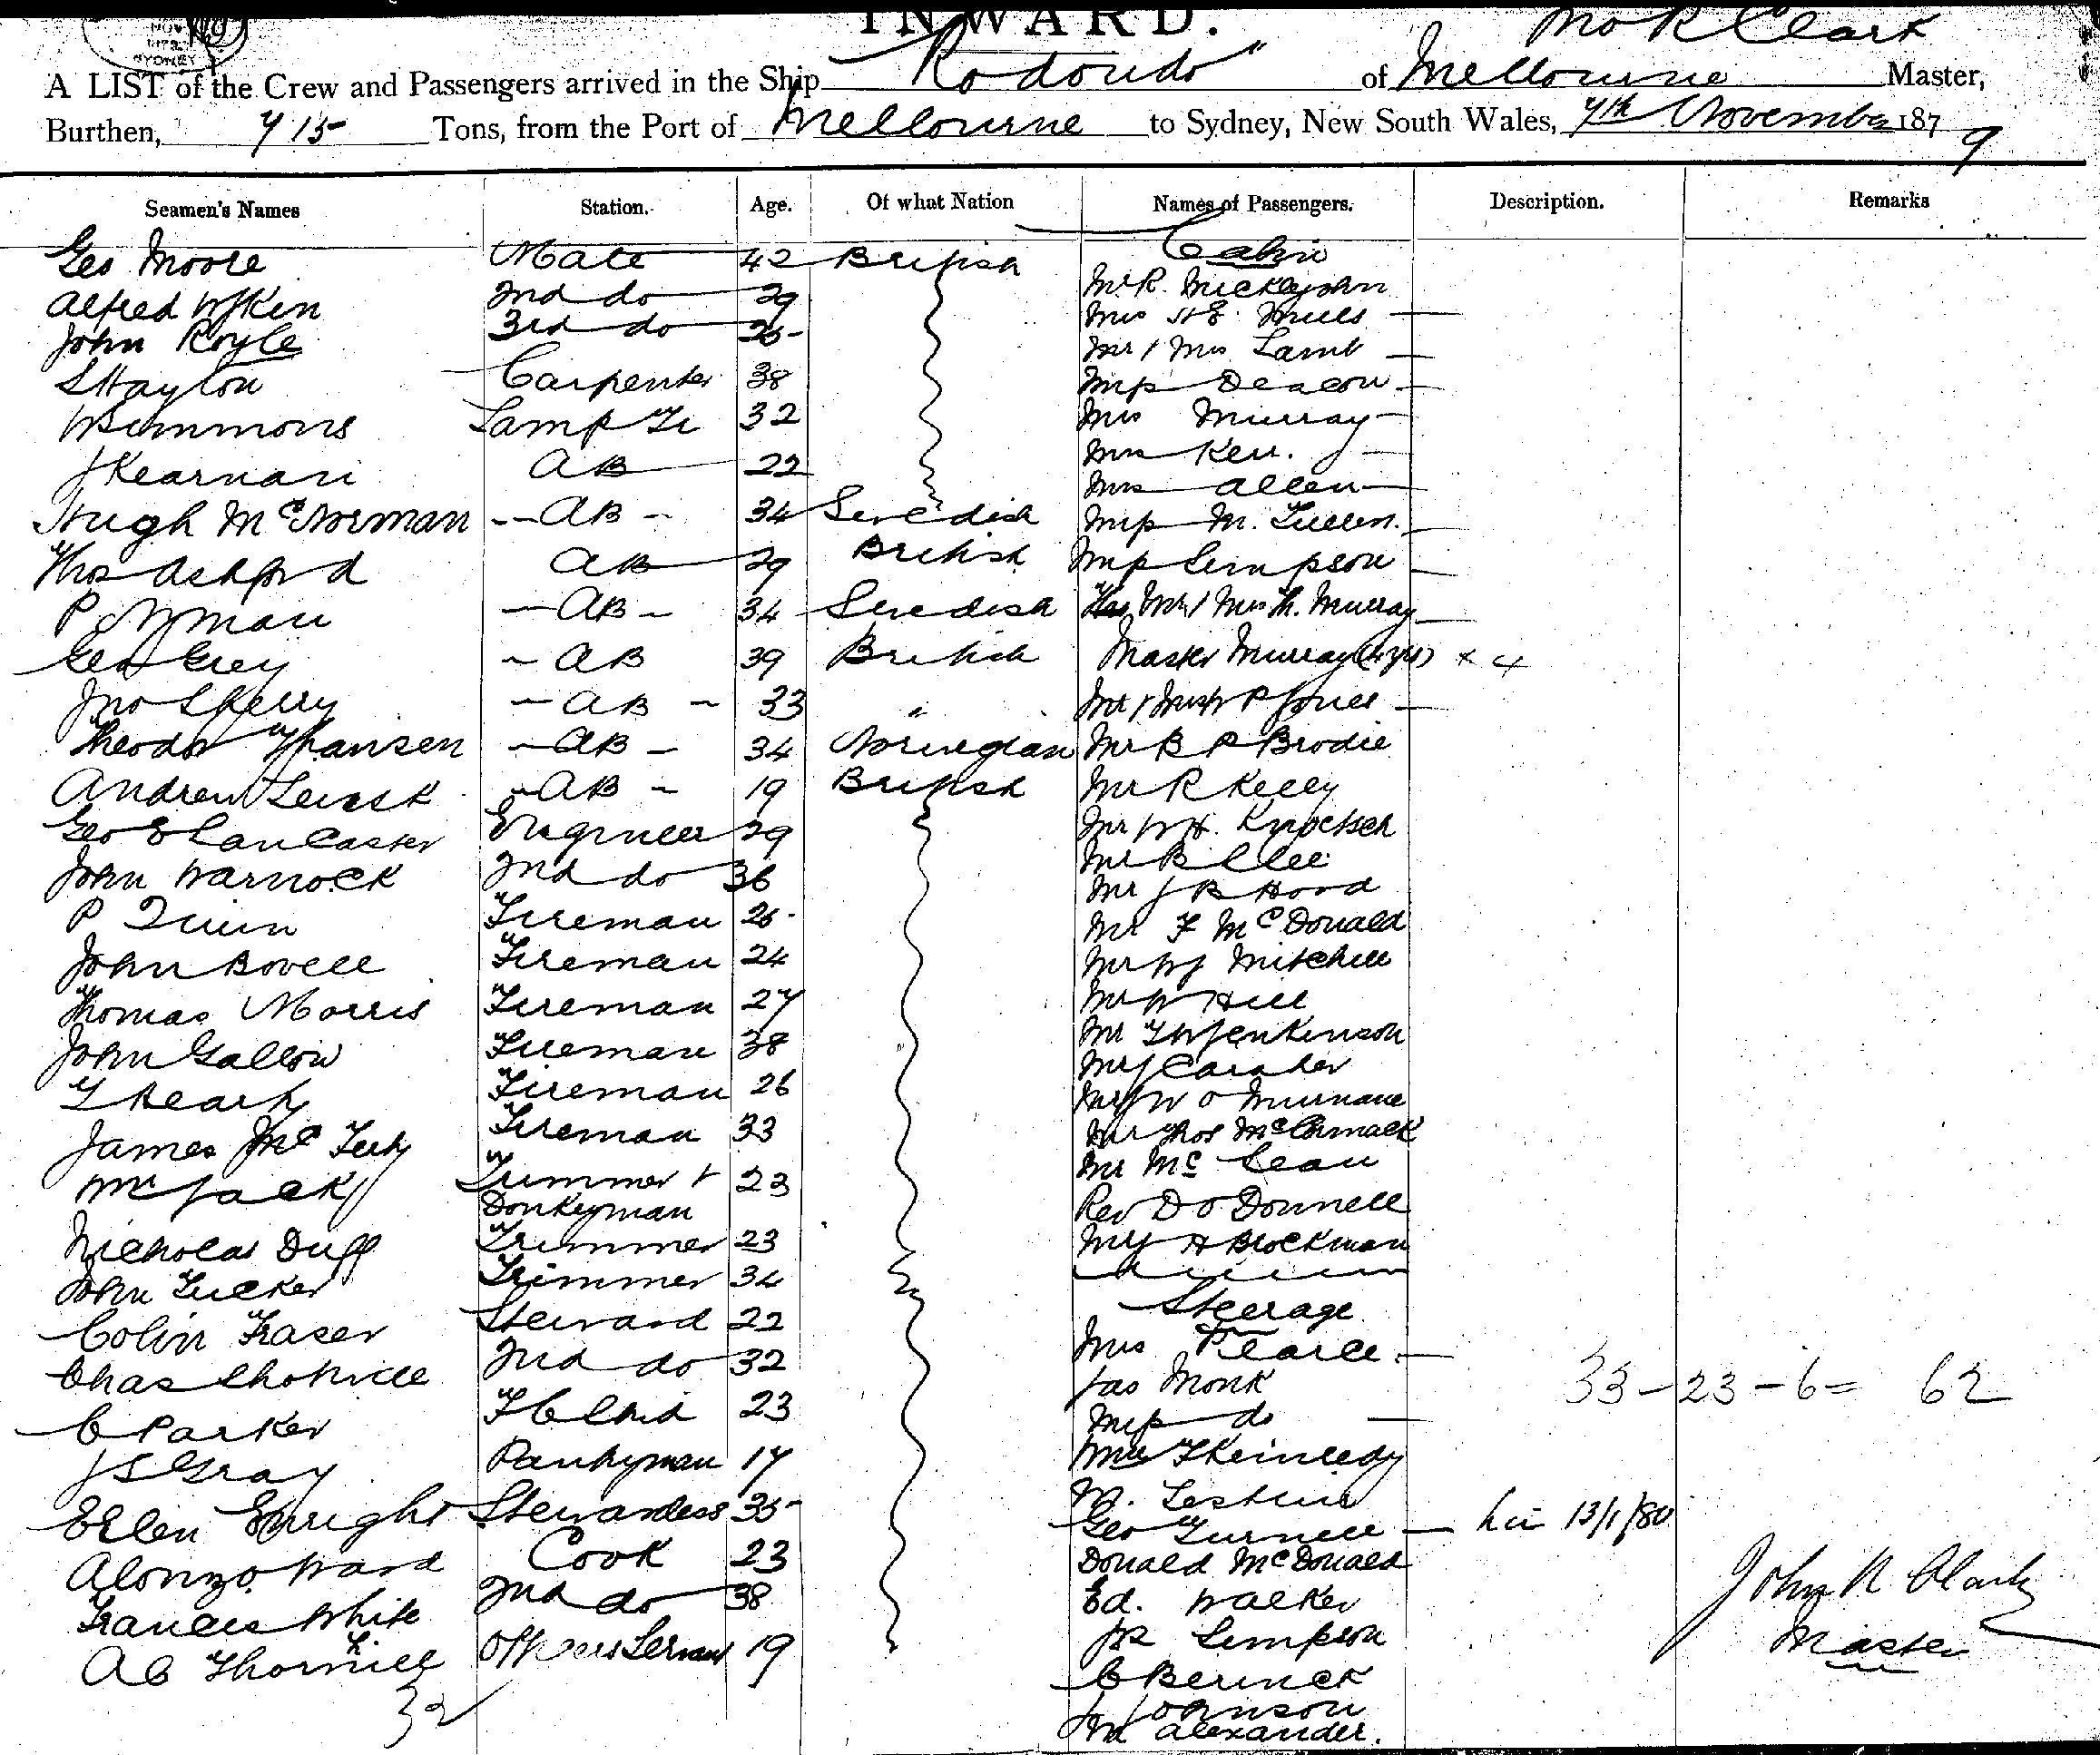 INWARD.
NOV
SYDNEY
Jno R Clark
A LIST of the Crew and Passengers arrived in the Ship "Rodondo" of Melbourne Master,
Burthen, 715 Tons, from the Port of Melbourne to Sydney, New South Wales, 7th November 1879
Seamen's Names Station. Age. Of what Nation Names of Passengers. Description. Remarks
Cabin
Geo Moore Mate 42 British
Mr R. Micklejohn
Alfred 2nd do 29
Mrs Mills
John Royle 3rd do 25
Mr & Mrs Lamb
S Hayton Carpenter 38
Miss Deacon
W Simmons Lamp Tr 32
Mrs Murray
J Kearnan AB 22
Mrs Kerr.
Mrs Allen
Hugh McNorman AB 34 Swedish
Miss M.
Thos Ashford AB 29 British
Miss Simpson
P Nyman AB 34 Swedish
Mr & Mrs Th. Murray
Geo Grey AB 39 British
Master Murray x 4
Jno Skerry AB 33 "
Mr & P Jones
Theodor Hansen AB 34 Norwegian
Mr B P Brodie
Andrew Leask AB 19 British
Mr R Kelly
Geo E Lancaster Engineer 29
Mr W H. Knoetsch
Mr B Clee
John Warnock 2nd do 36
Mr J B Hood
P Quinn Fireman 25
Mr F McDonald
John Bovell Fireman 24
Mr W J Mitchell
Thomas Morris Fireman 27
Mr W Hill
Mr Jenkinson
John Gallow Fireman 38
Mr J
T Fireman 26
Mr O Murnane
James Mc Fireman 33
Mr Thos McCormack
Mr McLean
Wm Jack Trimmer & Donkeyman 23
Rev D O Donnell
Nicholas Duff Trimmer 23
Mr H Brockman
John Tucker Trimmer 34
Steerage
Colin Fraser Steward 22
Mrs Pearce
Chas 2nd do 32
Jas Monk
33 - 23 - 6 = 62
C Parker F C 23
Miss do
J S Gray Pantryman 17
Kennedy
Ellen Enright Stewardess 35
Geo Turnell 13/1/80
Alonzo Ward Cook 23
Donald McDonald
Francis White 2nd do 38
Ed. Walker
John R Clark
Master
A C Thornhill Officers Servant 19
Simpson
C
32
Johnson
Alexander.